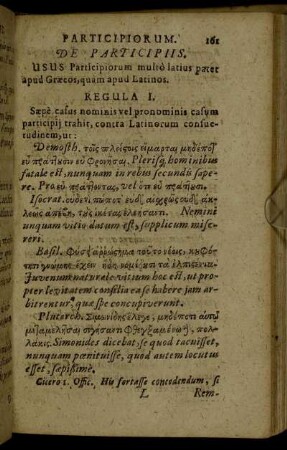 PARTICIPIORUM. 161
DE PARTICIPIIS.
USUS Participiorum multò latius patet
apud Græcos, quàm apud Latinos.
REGULA I.
Sæpè casus nominis vel pronominis casum
participij trahit, contra Latinorum consue-
tudinem, ut:
Demosth. τοῖς πλείστοις εἵμαρται μηδέποτ᾽
εὖ πράττουσιν εὖ φρονῆσαι. Plerisq; hominibus
fatale est, nunquam in rebus secundis sape-
re. Pro εὖ πράττοντας, vel ὅτι εὖ πράττουσι.
Isocrat.
unquam vitio datum est, supplicum mise-
reri.
Basil.
Juvenum naturale vitium hoc est, ut pro-
pter levitatem consilia ea se habere jam ar-
bitrentur, quæ spe concupiverunt.
Plutarch. Σιμωνίδης ἔλεγε, μηδέποτε αὐτῷ
μεταμελῆσαι σιγήσαντι φθεγξαμένῳ, πολ-
λάκις. Simonides dicebat, se quod tacuisset,
nunquam pœnituisse, quod autem locutus
esset, sæpissimè.
Cicero 1. Offic. His fortasse concedendum, si
L Rem-